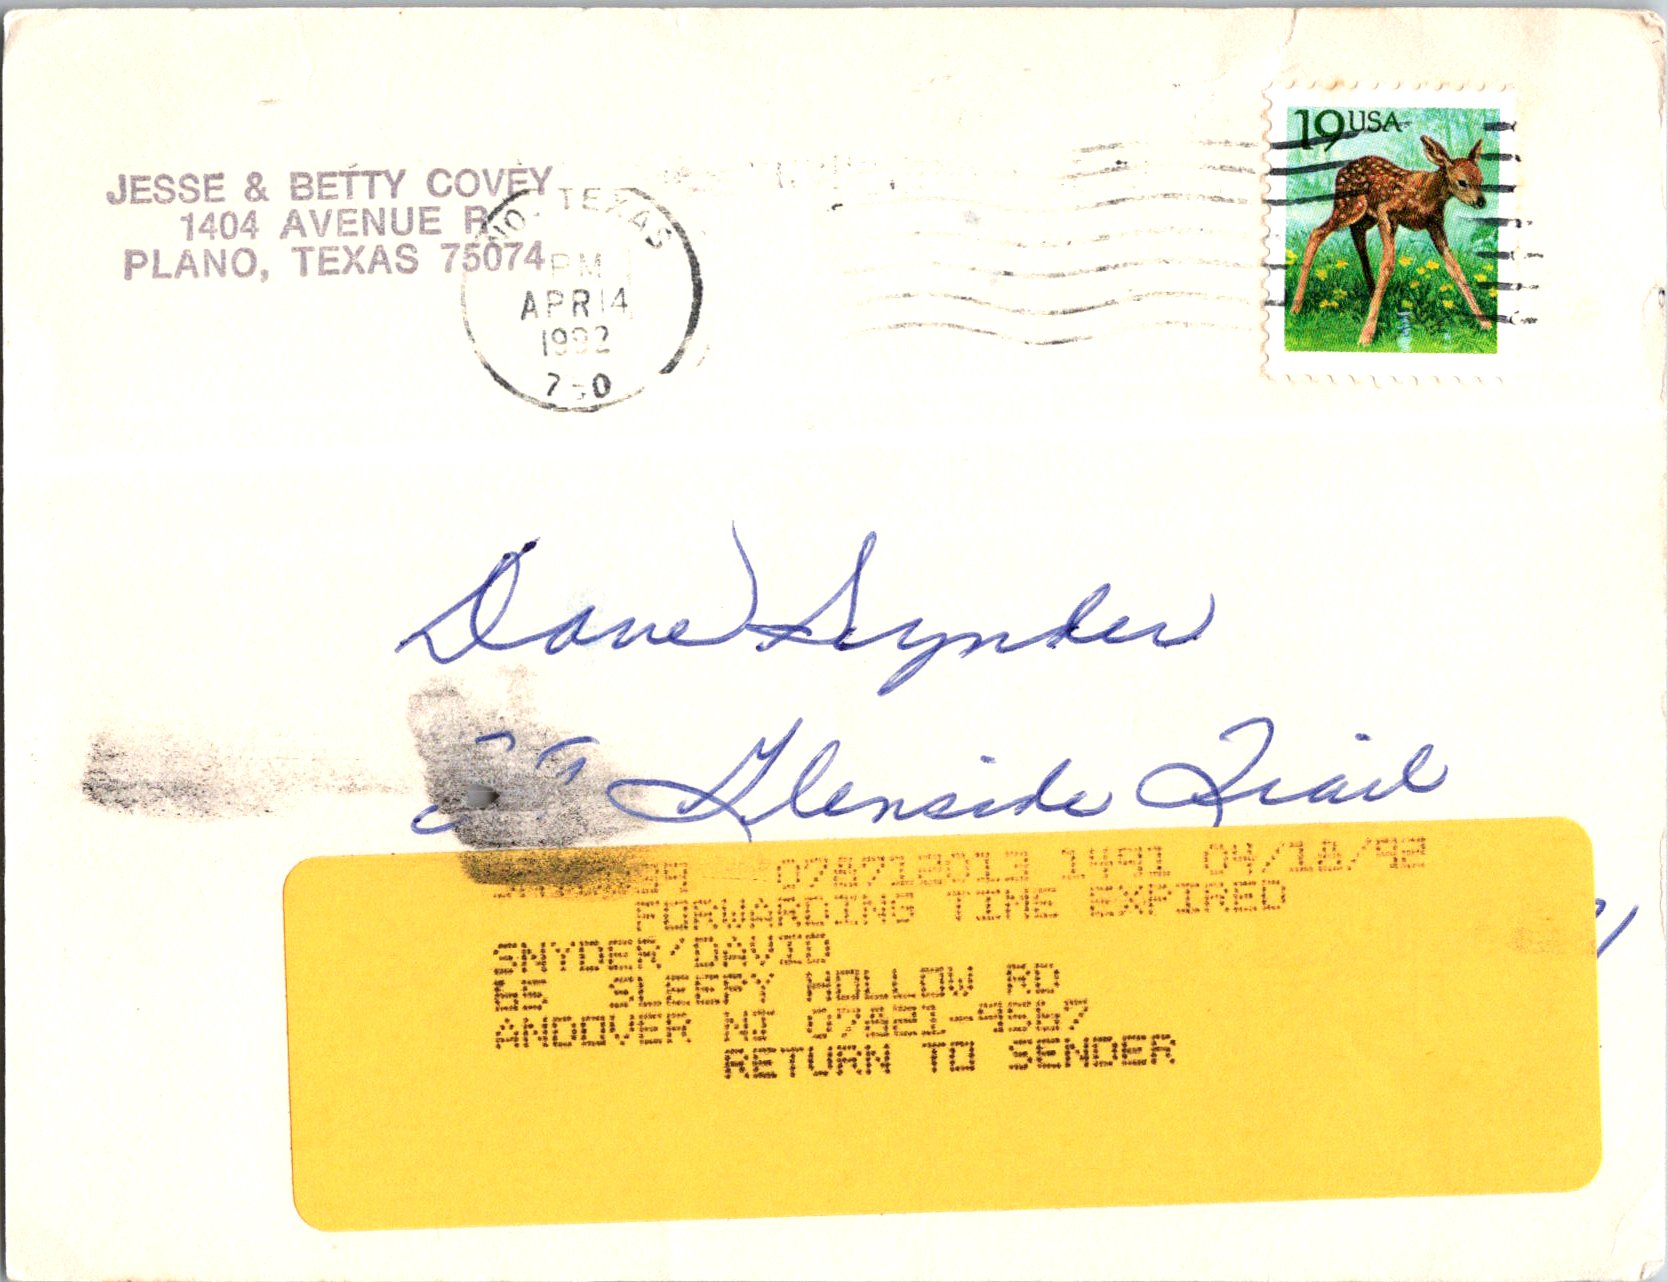 JESSE & BETTY COVEY
1404 AVENUE R
PLANO, TEXAS 75074
NO. TEXAS
PM
APR 14
1992
19 USA
Dave Synder
Glenside Trail
071871A2013 1491 04/18/92
FORWARDING TIME EXPIRED
SNYDER'DAVID
65 SLEEPY HOLLOW RD
ANDOVER NJ 07821-9567
RETURN TO SENDER